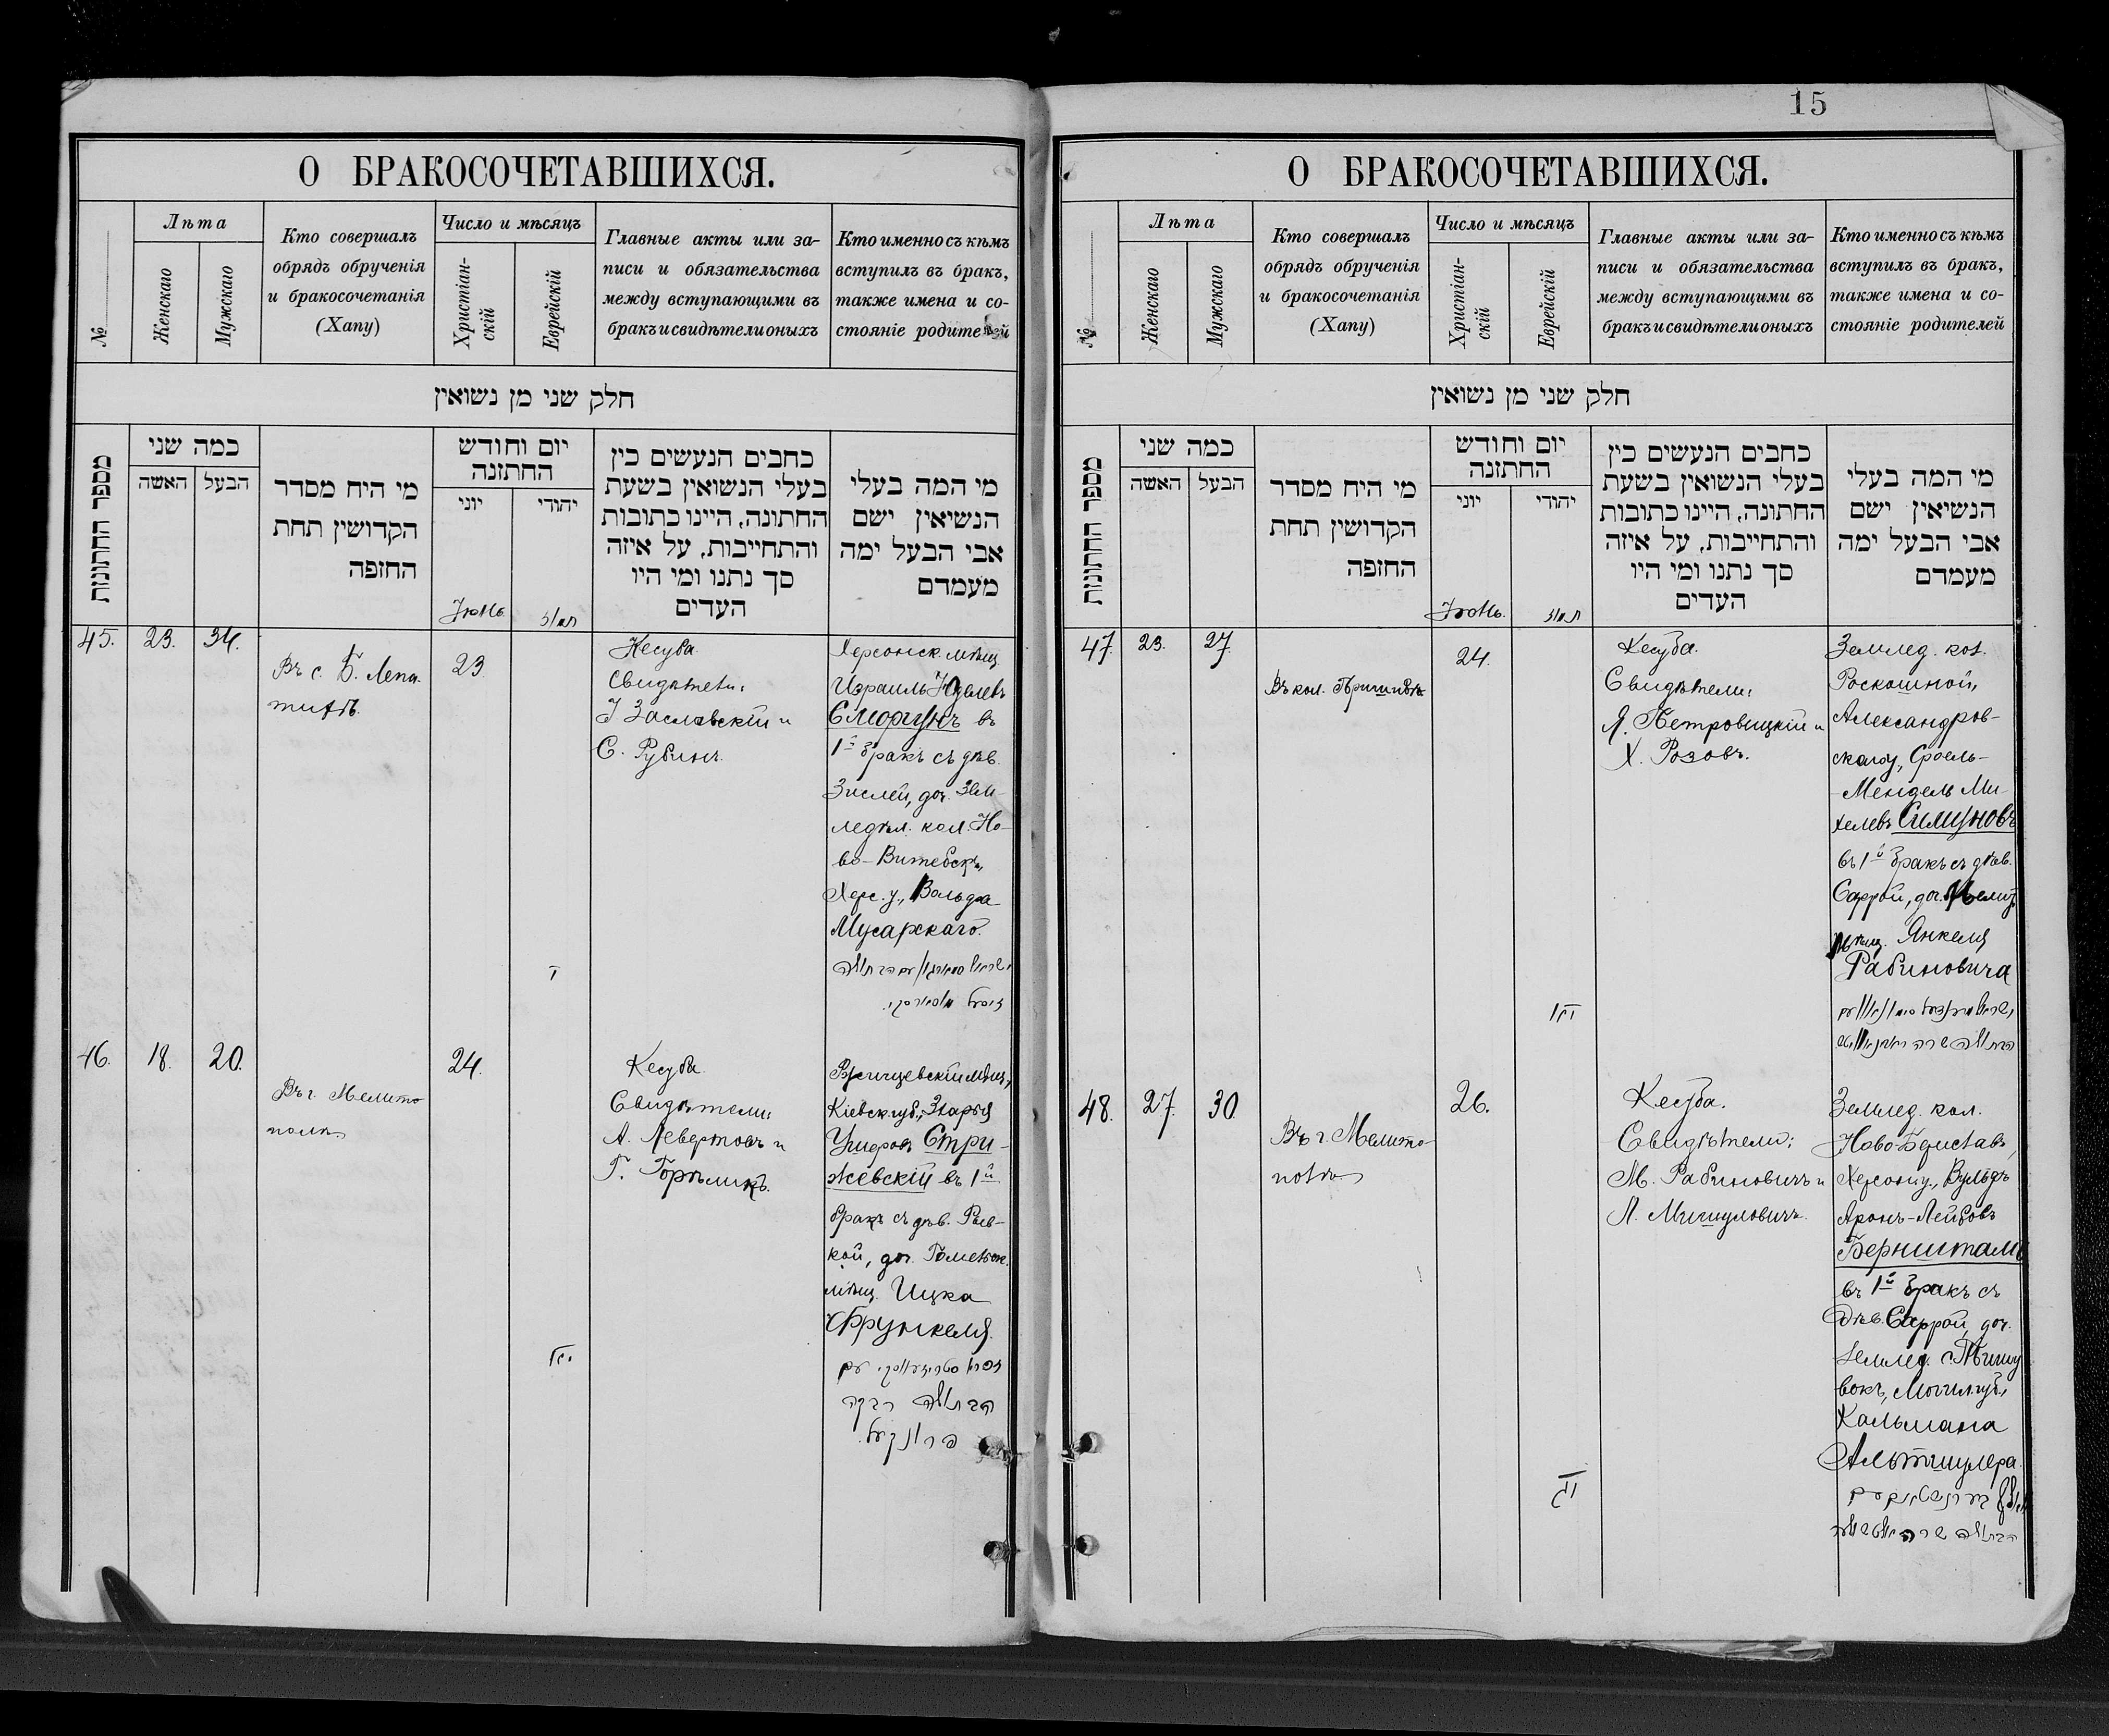 О БРАКОСОЧЕТАВШИХСЯ.
№
Лѣта
Женскаго
Мужскаго
Кто совершалъ
обрядъ обрученія
и бракосочетанія
(Хапу)
Число и мѣсяцъ
Христіан-
скій
Еврейскій
Главные акты или за-
писи и обязательства
между вступающими въ
бракъ и свидѣтели оныхъ
Кто именно съ кѣмъ
вступилъ въ бракъ,
также имена и со-
стояніе родителей
חלק שני מן נשואין
מספר החתונות
כמה שני
האשה
הבעל
מי היח מסדר
הקדושין תחת
החזפה
יום וחודש
החתזנה
יוני
יהודי
כחבים הנעשים כין
בעלי הנשואין בשעת
החתונה, היינו כתובות
והתחייבות, על איזה
סך נתנו ומי היו
העדים
מי המה בעלי
הנשיאין ישם
אבי הבעל ימה
מעמדם
Іюнь.
תמוז
45. 23. 34.
Въ с. Б. Лепа-
тихѣ.
23
Кесуба.
Свидѣтели:
І Заславскій и
С. Рубинъ.
Херсонск. мѣщ.
Израиль Юделевъ
Сморгунъ въ
1й бракъ съ дѣв.
Зислей, доч. Зем-
ледѣл. кол. Но-
во-Витебскъ,
Херс. у., Вольфа
Мусарскаго.
י
46. 18. 20.
Въ г. Мелито-
полѣ
24.
Кесуба.
Свидѣтели:
А. Левертовъ и
Г. Горѣликъ.
Кіевск. губ., Зларья
Стри-
жевскій въ 1й
бракъ съ дѣв. Рив-
кой, доч. Гомельск.
мѣщ. Ицка
Фрункеля.
עם
הבתולה רבקה
פרונקעל.
15
О БРАКОСОЧЕТАВШИХСЯ.
№
Лѣта
Женскаго
Мужскаго
Кто совершалъ
обрядъ обрученія
и бракосочетанія
(Хапу)
Число и мѣсяцъ
Христіан-
скій
Еврейскій
Главные акты или за-
писи и обязательства
между вступающими въ
бракъ и свидѣтели оныхъ
Кто именно съ кѣмъ
вступилъ въ бракъ,
также имена и со-
стояніе родителей
חלק שני מן נשואין
מספר החתונות
כמה שני
האשה
הבעל
מי היח מסדר
הקדושין תחת
החזפה
יום וחודש
החתזנה
יוני
יהודי
כחבים הנעשים כין
בעלי הנשואין בשעת
החתונה, היינו כתובות
והתחייבות, על איזה
סך נתנו ומי היו
העדים
מי המה בעלי
הנשיאין ישם
אבי הבעל ימה
מעמדם
Іюнь.
תמוז
47. 23. 27.
Въ кол. Пришибъ
24.
Кесуба.
Свидѣтели:
Я. Петровицкій и
Х. Розовъ.
Землед. кол.
Роскошной,
Александров-
скагоу, Сроель-
Мендель Ми-
хелевъ Симуновъ
въ 1й бракъ съ дѣв.
Саррой, доч.
мѣщ. Янкеля
Рабиновича
48. 27. 30.
Въ г. Мелито-
полѣ
26.
Кесуба.
Свидѣтели:
М. Рабиновичъ и
Л. Мишуловичъ.
Землед. кол.
Ново-Бериславъ,
Херсон. у., Вульфъ
Аронъ-Лейбовъ
Бернштамъ
въ 1й бракъ съ
дѣв. Саррой, доч.
Землед.
Могил. губ.,
Кальмана
Альтшулера.